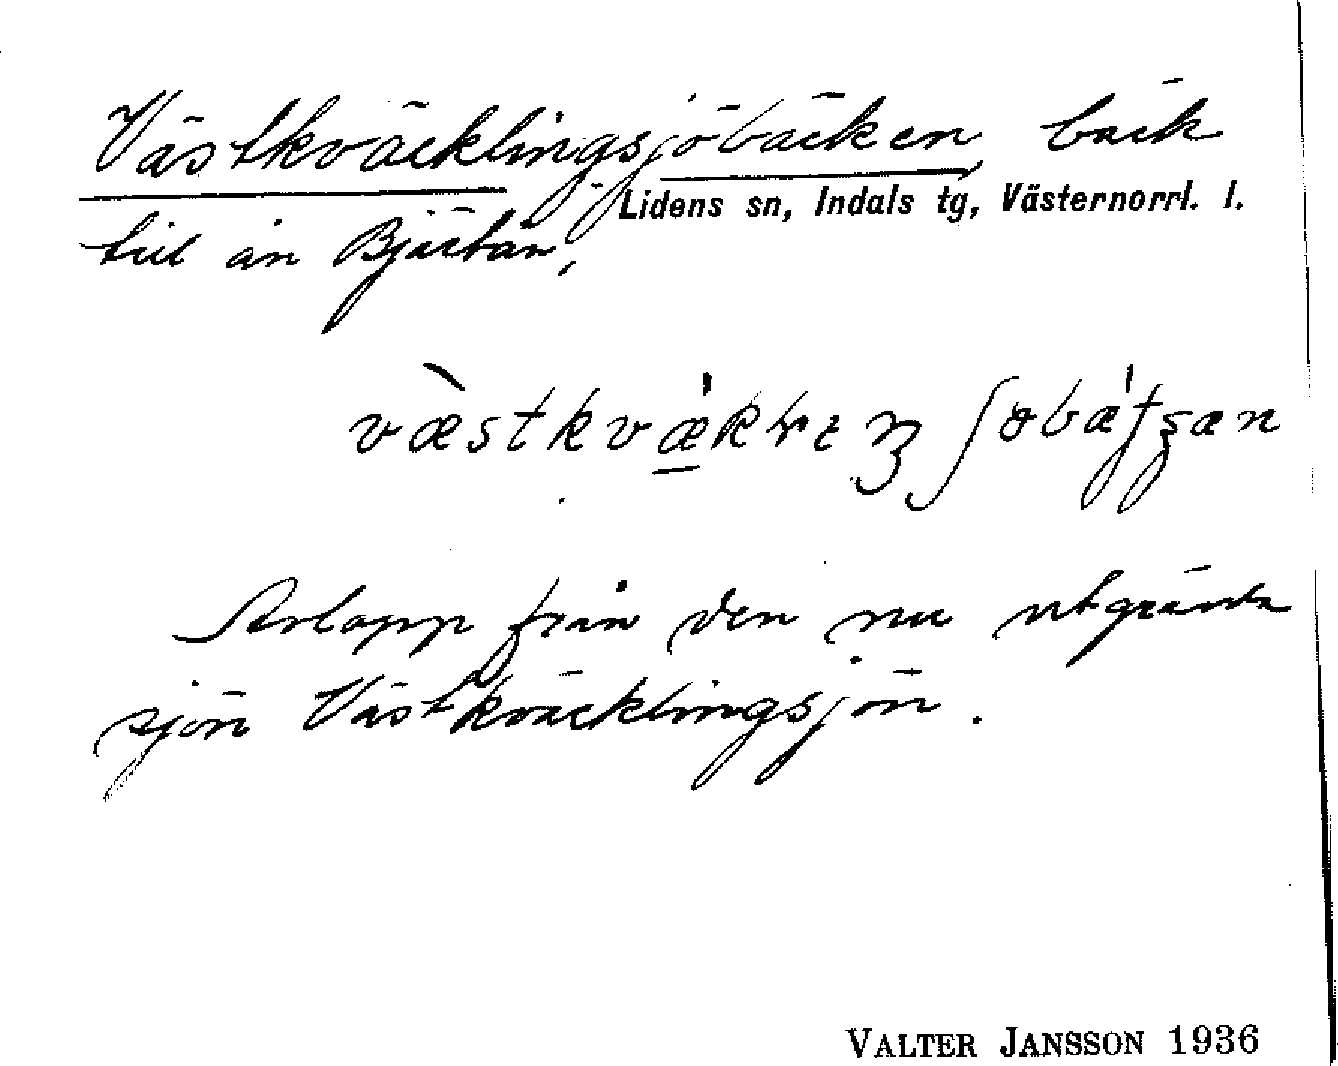 Västkväcklingsjöbäcken, bäck
Lidens sn, Indals tg, Västernorrl. l.
till ån Björkån,
Avlopp från den nu utgrävda
sjön Västkväcklingsjön.
VALTER JANSSON 1936